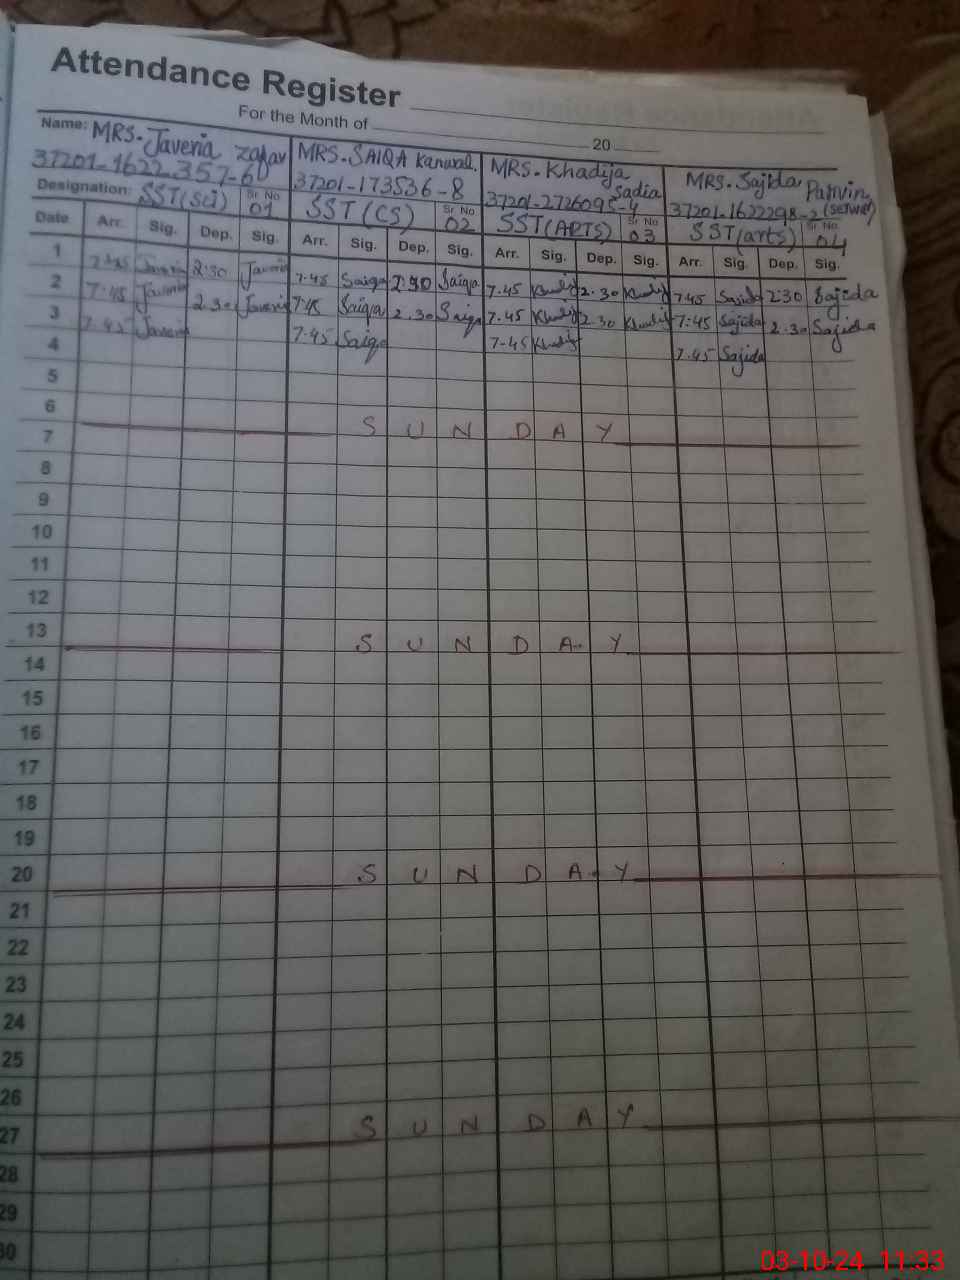 Attendance Register
For the Month of 20
Name: MRS. Javeria Zafar MRS. SAIQA Kanwal. MRS. Khadija Sadia MRS. Sajida Parvin
37201-1622357-6 37201-173536-8 37201-2726095-4 37201-1622298-2
Designation: SST(Sci) Sr No 01 SST(CS) Sr No 02 SST(ARTS) Sr No 03 SST(arts) Sr No 04
Date Arr. Sig. Dep. Sig. Arr. Sig. Dep. Sig. Arr. Sig. Dep. Sig. Arr. Sig. Dep. Sig.
1 7:45 Javeria 2:30 Javeria 7.45 Saiqa 2:30 Saiqa 7.45 Khadija 2.30 Khadija 7.45 Sajida 2:30 Sajida
2 7:45 Javeria 2.30 Javeria 7:45 Saiqa 2.30 Saiqa 7.45 Khadija 2.30 Khadija 7:45 Sajida 2.30 Sajida
3 7:45 Javeria 7.45 Saiqa 7-45 Khadija 7.45 Sajida
4
5
6 S U N D A Y
7
8
9
10
11
12
13 S U N D A Y
14
15
16
17
18
19
20 S U N D A Y
21
22
23
24
25
26
27 S U N D A Y
28
29
30
03-10-24 11:33